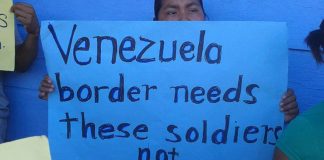 Venezuela
border needs
these soldiers
not